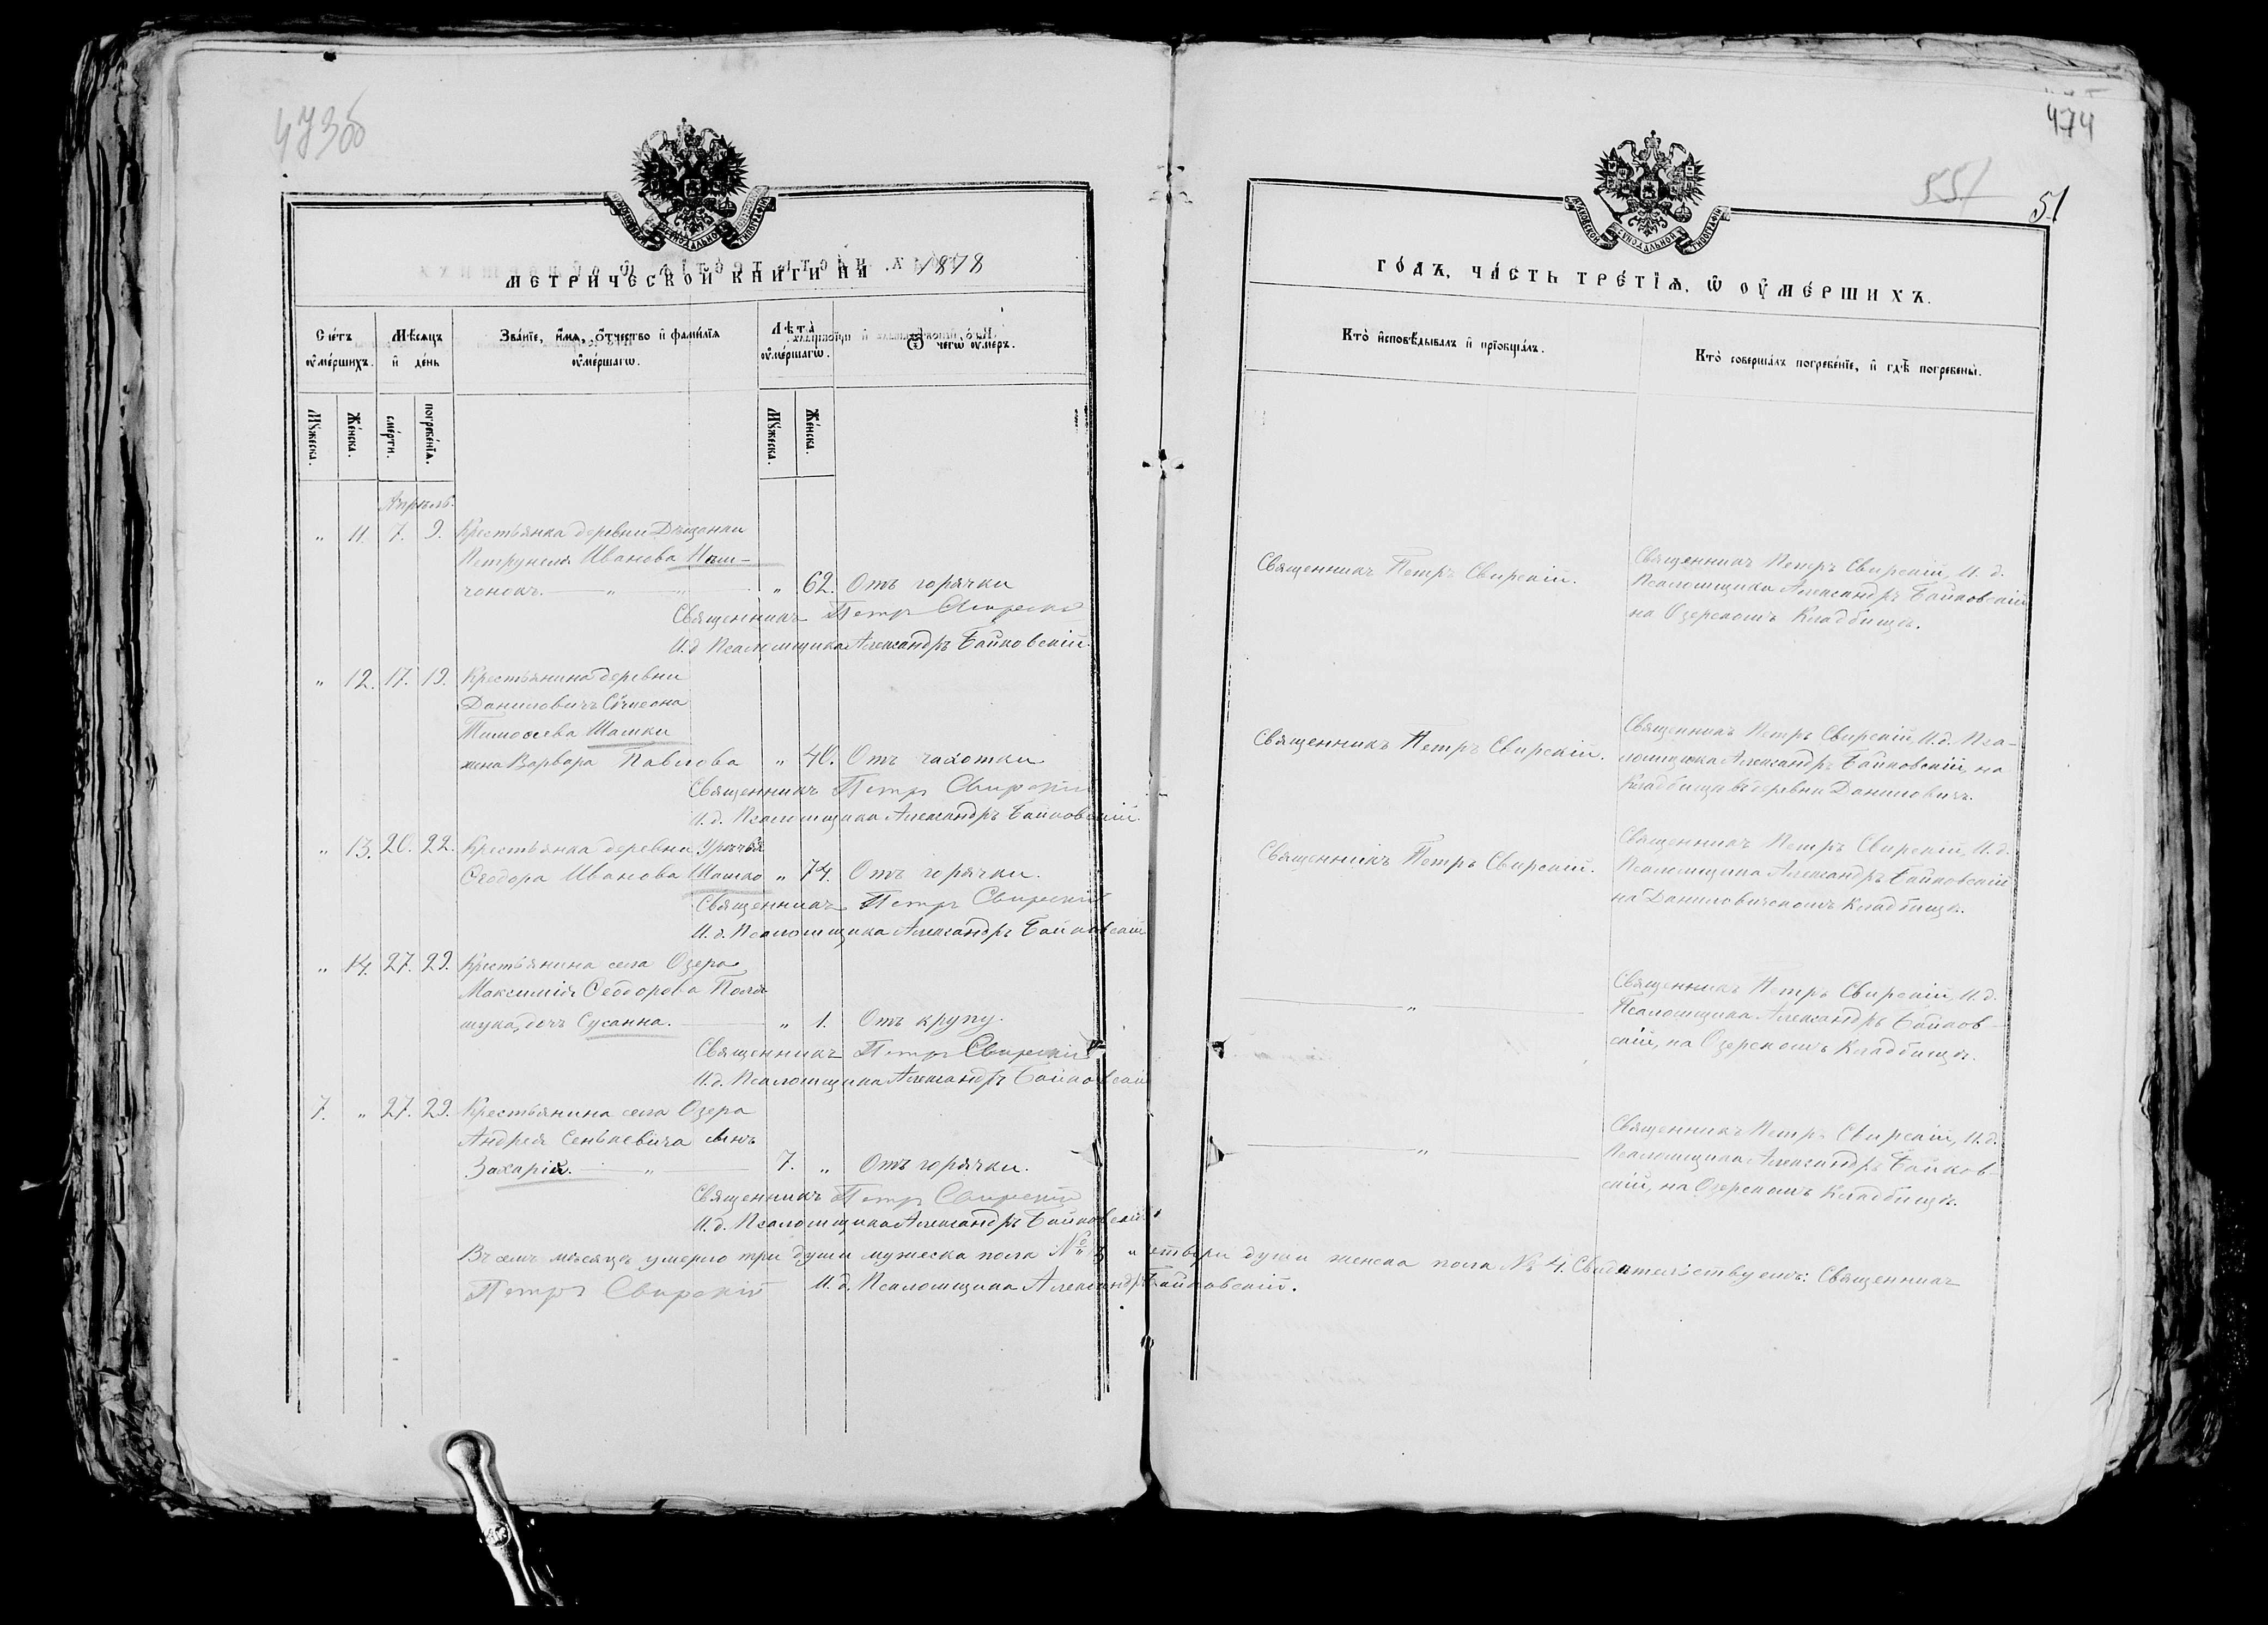 473об
474
551
51
МЕТРИЧЕСКОЙ КНИГИ НА 1878
ГОДЪ, ЧАСТЬ ТРЕТІЯ, Ѿ ОУМЕРШИХЪ.
Счетъ оумершихъ.
Мѣсяцъ и день
Званіе, имя, отчество и фамилія оумершагѡ.
Лѣта оумершагѡ.
Ѿ чегѡ оумеръ.
Кто исповѣдывалъ и пріобщалъ.
Кто совершалъ погребеніе, и гдѣ погребены.
Мужеска.
Женска.
смерти.
погребенія.
Мужеска.
Женска.
Апрѣль.
" 11. 7. 9. Крестьянка деревни
Петрунеля Иванова
чонокъ. " 62. Отъ горячки
Священникъ Петръ Свирскій
И.д. Псаломщика Александръ Байковскій.
Священникъ Петръ Свирскій.
Священникъ Петръ Свирскій, И. д.
Псаломщика Александръ Байковскій
на Озерскомъ Кладбищѣ.
" 12. 17. 19. Крестьянина деревни
Даниловичъ Сѵмеона
Тимоѳеева Шашки
жена Варвара Павлова " 40. Отъ чахотки
Священникъ Петръ Свирскій
И.д. Псаломщика Александръ Байковскій.
Священникъ Петръ Свирскій.
Священникъ Петръ Свирскій, И.д. Пса-
ломщика Александръ Байковскій, на
Кладбищѣ деревни Даниловичъ.
" 13. 20. 22. Крестьянка деревни Урѣчья
Ѳеодора Иванова Шашко " 74. Отъ горячки.
Священникъ Петръ Свирскій
И.д. Псаломщика Александръ Байковскій
Священникъ Петръ Свирскій.
Священникъ Петръ Свирскій, И.д.
Псаломщика Александръ Байковскій
на Даниловичскомъ Кладбищѣ.
" 14. 27. 29. Крестьянина села Озера
Максиміа Ѳеодорова Поле
щука, дочь Сусанна. " 1. Отъ крупу.
Священникъ Петръ Свирскій
И.д. Псаломщика Александръ Байковскій
"
Священникъ Петръ Свирскій, И.д.
Псаломщика Александръ Байков-
скій, на Озерскомъ Кладбищѣ.
7. " 27. 29. Крестьянина села Озера
Андрея Сенькевича сынъ
Захарія. " 7. " Отъ горячки.
Священникъ Петръ Свирскій
И.д. Псаломщика Александръ Байковскій
"
Священникъ Петръ Свирскій, И.д.
Псаломщика Александръ Байков-
скій, на Озерскомъ Кладбищѣ.
Въ семъ мѣсяцѣ умерло три души мужеска пола № 3 четвери души женска пола № 4. Свидѣтельствуемъ: Священникъ
Петръ Свирскій И. д. Псаломщика Александръ Байковскій.